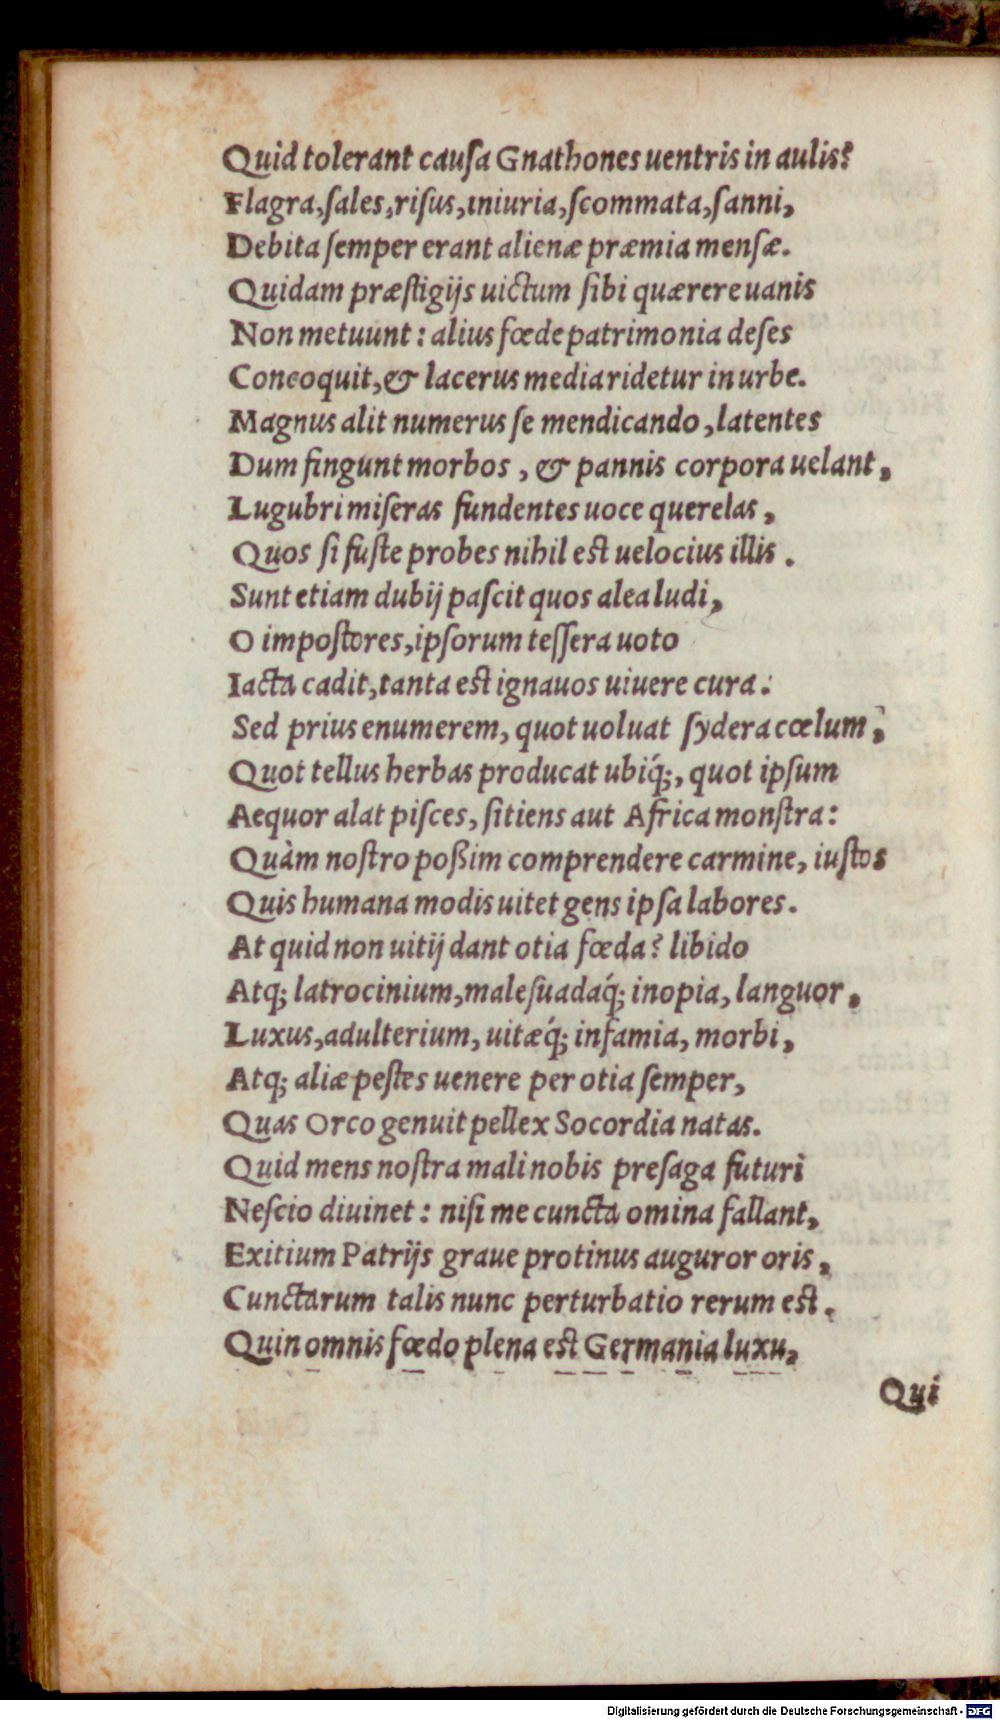 Quid tolerant cauſa Gnathones uentris in aulis?
Flagra, ſales, riſus, iniuria, ſcommata, ſanni,
Debita ſemper erant alienæ præmia menſæ.
Quidam præſtigijs uictum ſibi quærere uanis
Non metuunt: alius fœde patrimonia deſes
Concoquit, & lacerus media ridetur in urbe.
Magnus alit numerus ſe mendicando, latentes
Dum fingunt morbos, & pannis corpora uelant,
Lugubri miſeras fundentes uoce querelas,
Quos ſi fuſte probes nihil eſt uelocius illis.
Sunt etiam dubij paſcit quos alea ludi,
O impoſtores, ipſorum teſſera uoto
Iacta cadit, tanta eſt ignauos uiuere cura:
Sed prius enumerem, quot uoluat ſydera cœlum,
Quot tellus herbas producat ubiq́;, quot ipſum
Aequor alat piſces, ſitiens aut Africa monſtra:
Quàm noſtro poßim comprendere carmine, iuſtos
Quis humana modis uitet gens ipſa labores.
At quid non uitij dant otia fœda? libido
Atq; latrocinium, maleſuadaq́; inopia, languor,
Luxus, adulterium, uitæq́; infamia, morbi,
Atq; aliæ peſtes uenere per otia ſemper,
Quas Orco genuit pellex Socordia natas.
Quid mens noſtra mali nobis preſaga futuri
Neſcio diuinet: niſi me cuncta omina fallant,
Exitium Patrijs graue protinus auguror oris,
Cunctarum talis nunc perturbatio rerum eſt.
Quin omnis fœdo plena eſt Germania luxu,
Qui
Digitalisierung gefördert durch die Deutsche Forschungsgemeinschaft - DFG